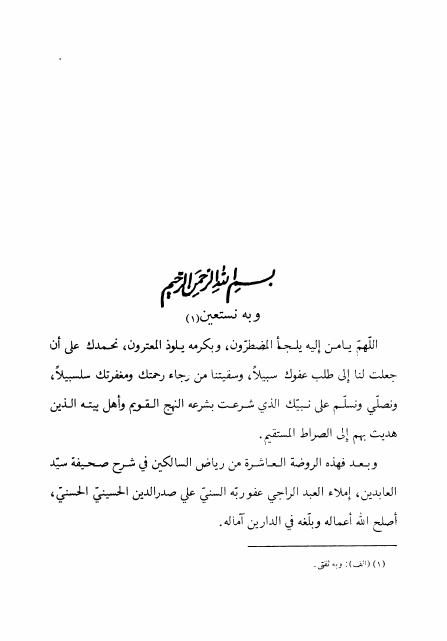 بسم الله الرحمن الرحيم
وبه نستعين (١)
اللّهمّ يـامـن إليه يلـجـأ المضطـرّون، وبكرمه يـلوذ المعترون، نحـمدك على أن
جعلت لنا إلى طلب عفوك سبيلاً، وسقيتنا من رجاء رحمتك ومغفرتك سلسبيلاً،
ونصلّي ونسلّـم على نـبيّك الذي شرعـت بشرعه النهج القـويم وأهل بيتـه الـذين
هديت بهم إلى الصراط المستقيم.
وبـعـد فهذه الروضة العـاشـرة من رياض السالكين في شرح صحـيفة سيّد
العابدين، إملاء العبد الراجي عفو ربّه السنيّ علي صدرالدين الحسينيّ الحسنيّ،
أصلح الله أعماله وبلّغه في الدارين آماله.
(١) (الف): وبه ثقتي.